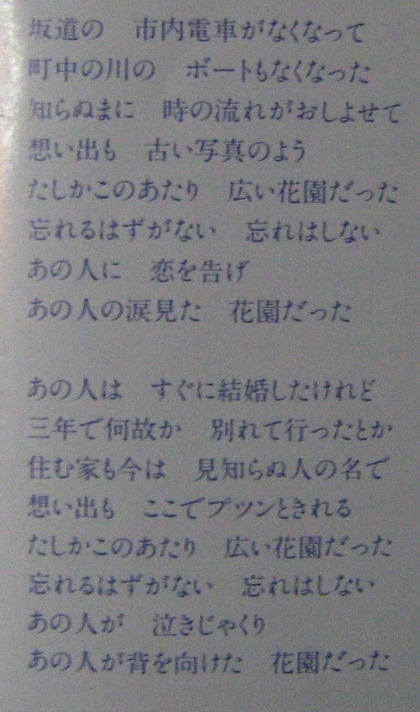 坂道の　市内電車がなくなって
町中の川の　ボートもなくなった
知らぬまに　時の流れがおしよせて
想い出も　古い写真のよう
たしかこのあたり　広い花園だった
忘れるはずがない　忘れはしない
あの人に　恋を告げ
あの人の涙見た　花園だった
あの人は　すぐに結婚したけれど
三年で何故か　別れて行ったとか
住む家も今は　見知らぬ人の名で
想い出も　ここでプツンときれる
たしかこのあたり　広い花園だった
忘れるはずがない　忘れはしない
あの人が　泣きじゃくり
あの人が背を向けた　花園だった